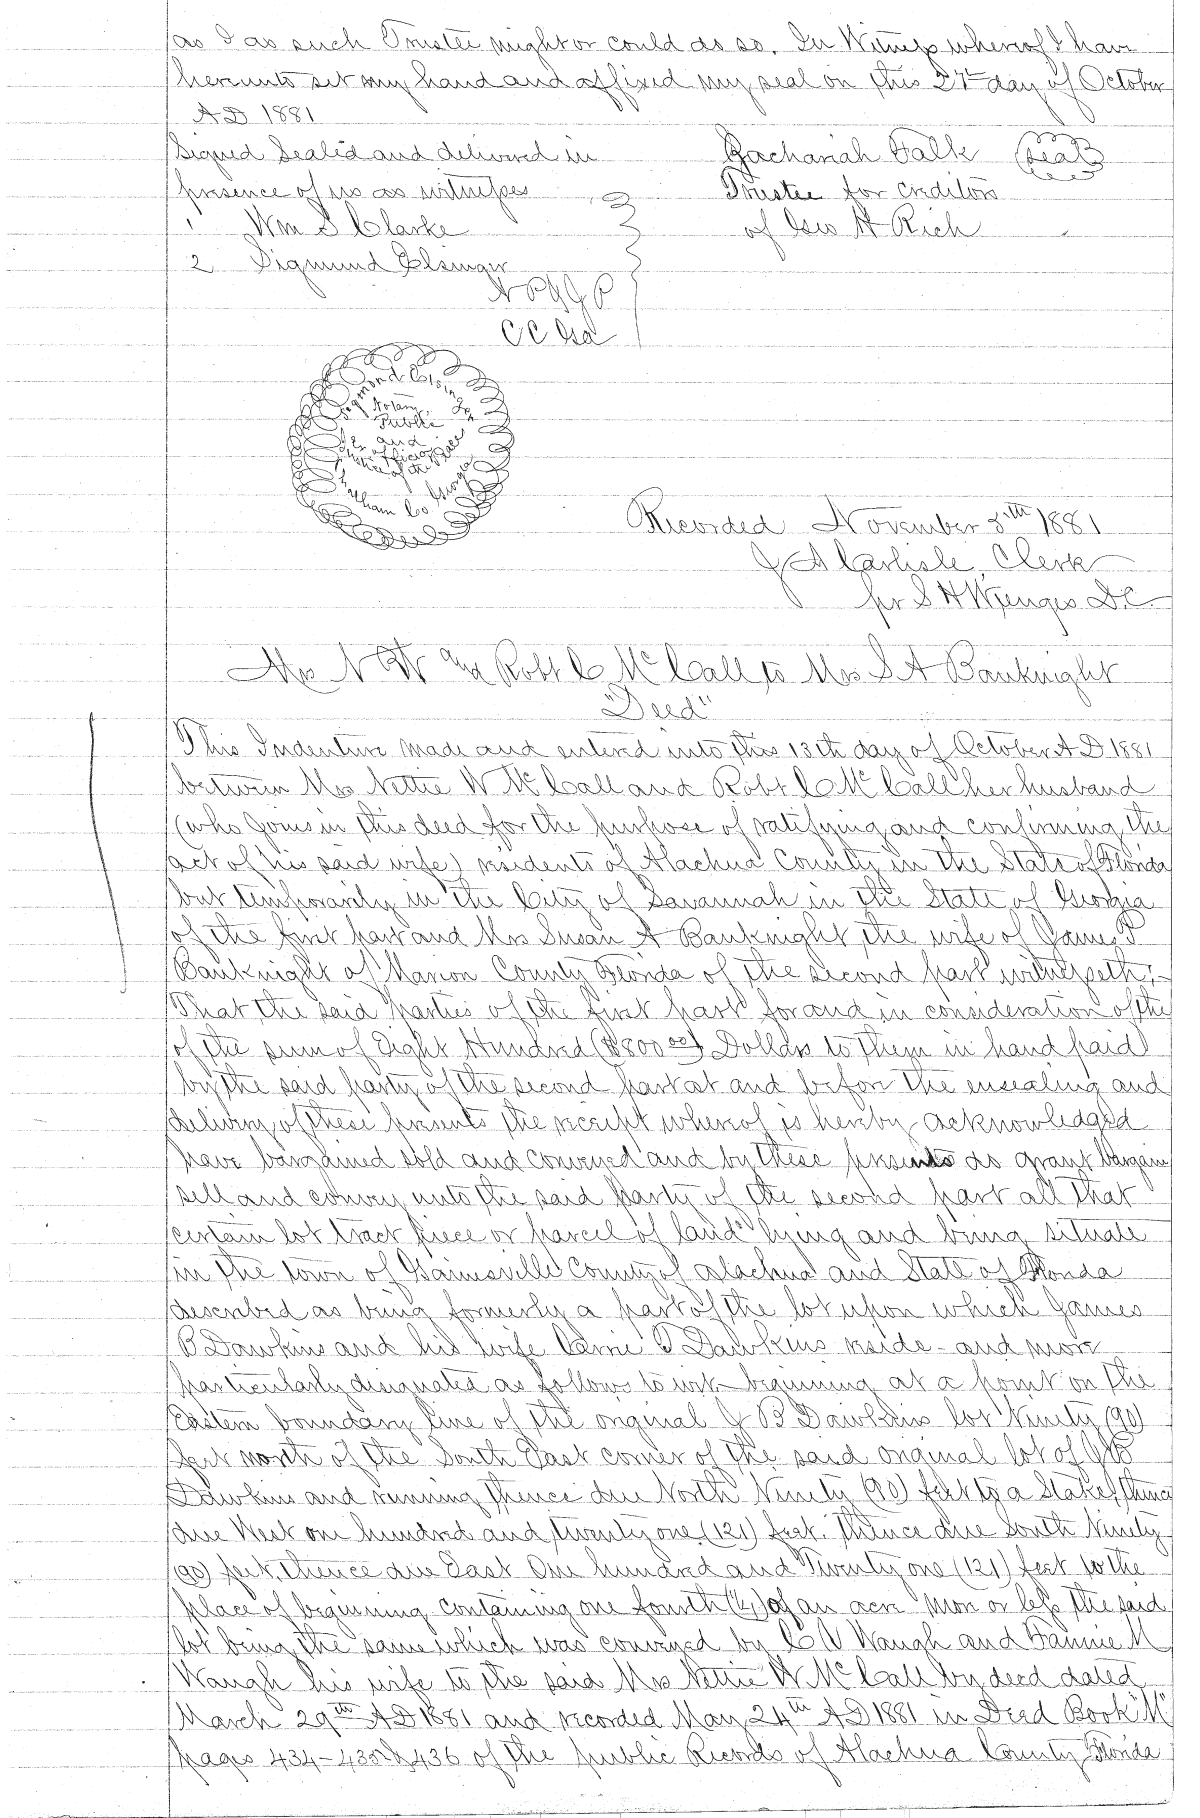 as I as such Trustee might or could do so. In Witness whereof I have
hereunto set my hand and affixed my seal on this 27th day of October
AD 1881
Signed Sealed and delivered in
presence of us as witnesses
1 Wm S Clarke
2 Sigmund Elsinger
N P & J P
C C Ga
Zachariah Falk (seal)
Trustee for creditors
of Geo H Rich
Sigmond Elsinger
Notary
Public
and
Ex officio
Justice of the Peace
Chatham Co Georgia
Recorded November 5th 1881
J A Carlisle, Clerk
pr S H Wienges D.C.
Mrs N W and Robt C McCall to Mrs S A Bauknight
"Deed"
This Indenture made and entered into this 13th day of October A D 1881
between Mrs Nettie W McCall and Robt C McCall her husband
(who joins in this deed for the purpose of ratifying and confirming the
act of his said wife) residents of Alachua County in the State of Florida
but temporarily in the City of Savannah in the State of Georgia
of the first part and Mrs Susan A Bauknight, the wife of James P
Bauknight of Marion County Florida of the second part witnesseth;-
That the said parties of the first part for and in consideration of the
of the sum of Eight Hundred ($800 00) Dollars to them in hand paid
by the said party of the second part at and before the ensealing and
delivery of these presents the receipt whereof is hereby acknowledged
have bargained sold and conveyed and by these presents do grant bargain
sell and convey unto the said party of the second part all that
certain lot tract piece or parcel of land lying and being situate
in the town of Gainesville County of Alachua and State of Florida
described as being formerly a part of the lot upon which James
B Dawkins and his wife Carrie T Dawkins reside - and more
particularly designated as follows to wit - beginning at a point on the
Eastern boundary line of the original J B Dawkins lot Ninety (90)
feet north of the South East corner of the said original lot of J B
Dawkins and running thence due North Ninety (90) feet to a Stake, thence
due West one hundred and twenty one (121) feet. Thence due South Ninety
(90) feet, thence due East One hundred and Twenty one (121) feet to the
place of beginning containing one fourth (1/4) of an acre more or less the said
lot being the same which was conveyed by C V Waugh and Fannie M
Waugh his wife to the said Mrs Nettie W McCall by deed dated
March 29th AD 1881 and recorded May 24th AD 1881 in Deed Book "M"
pages 434-435 & 436 of the public Records of Alachua County Florida